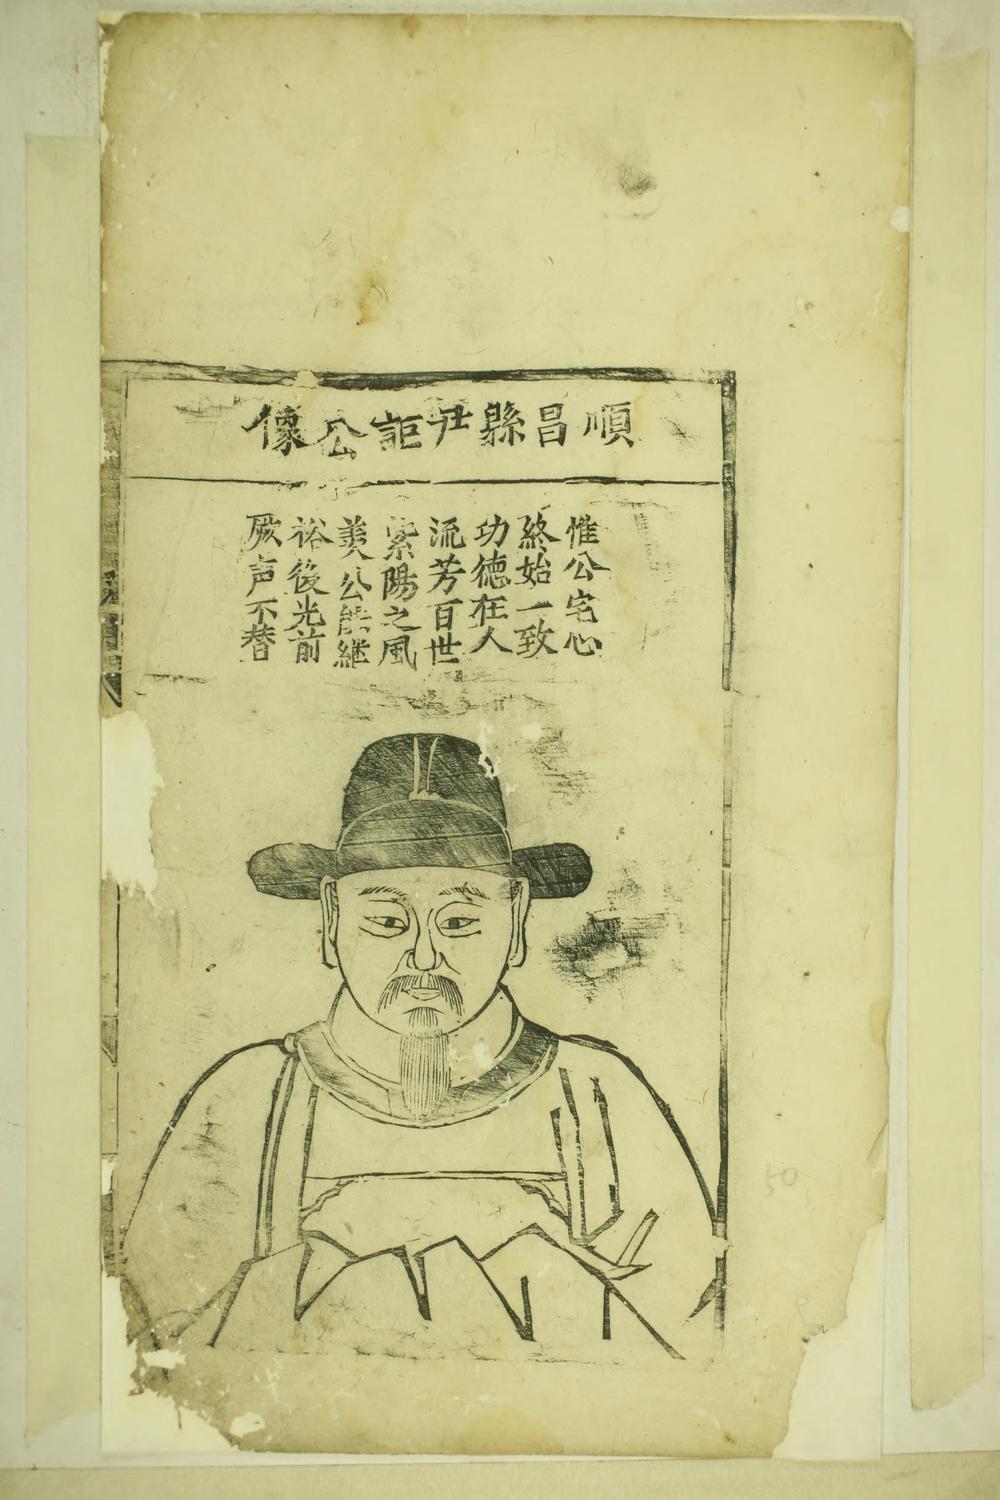 順昌縣尹詎公像
惟公宅心
終始一致
功德在人
流芳百世
紫陽之風
羙公能継
裕後光前
厥声不替
50